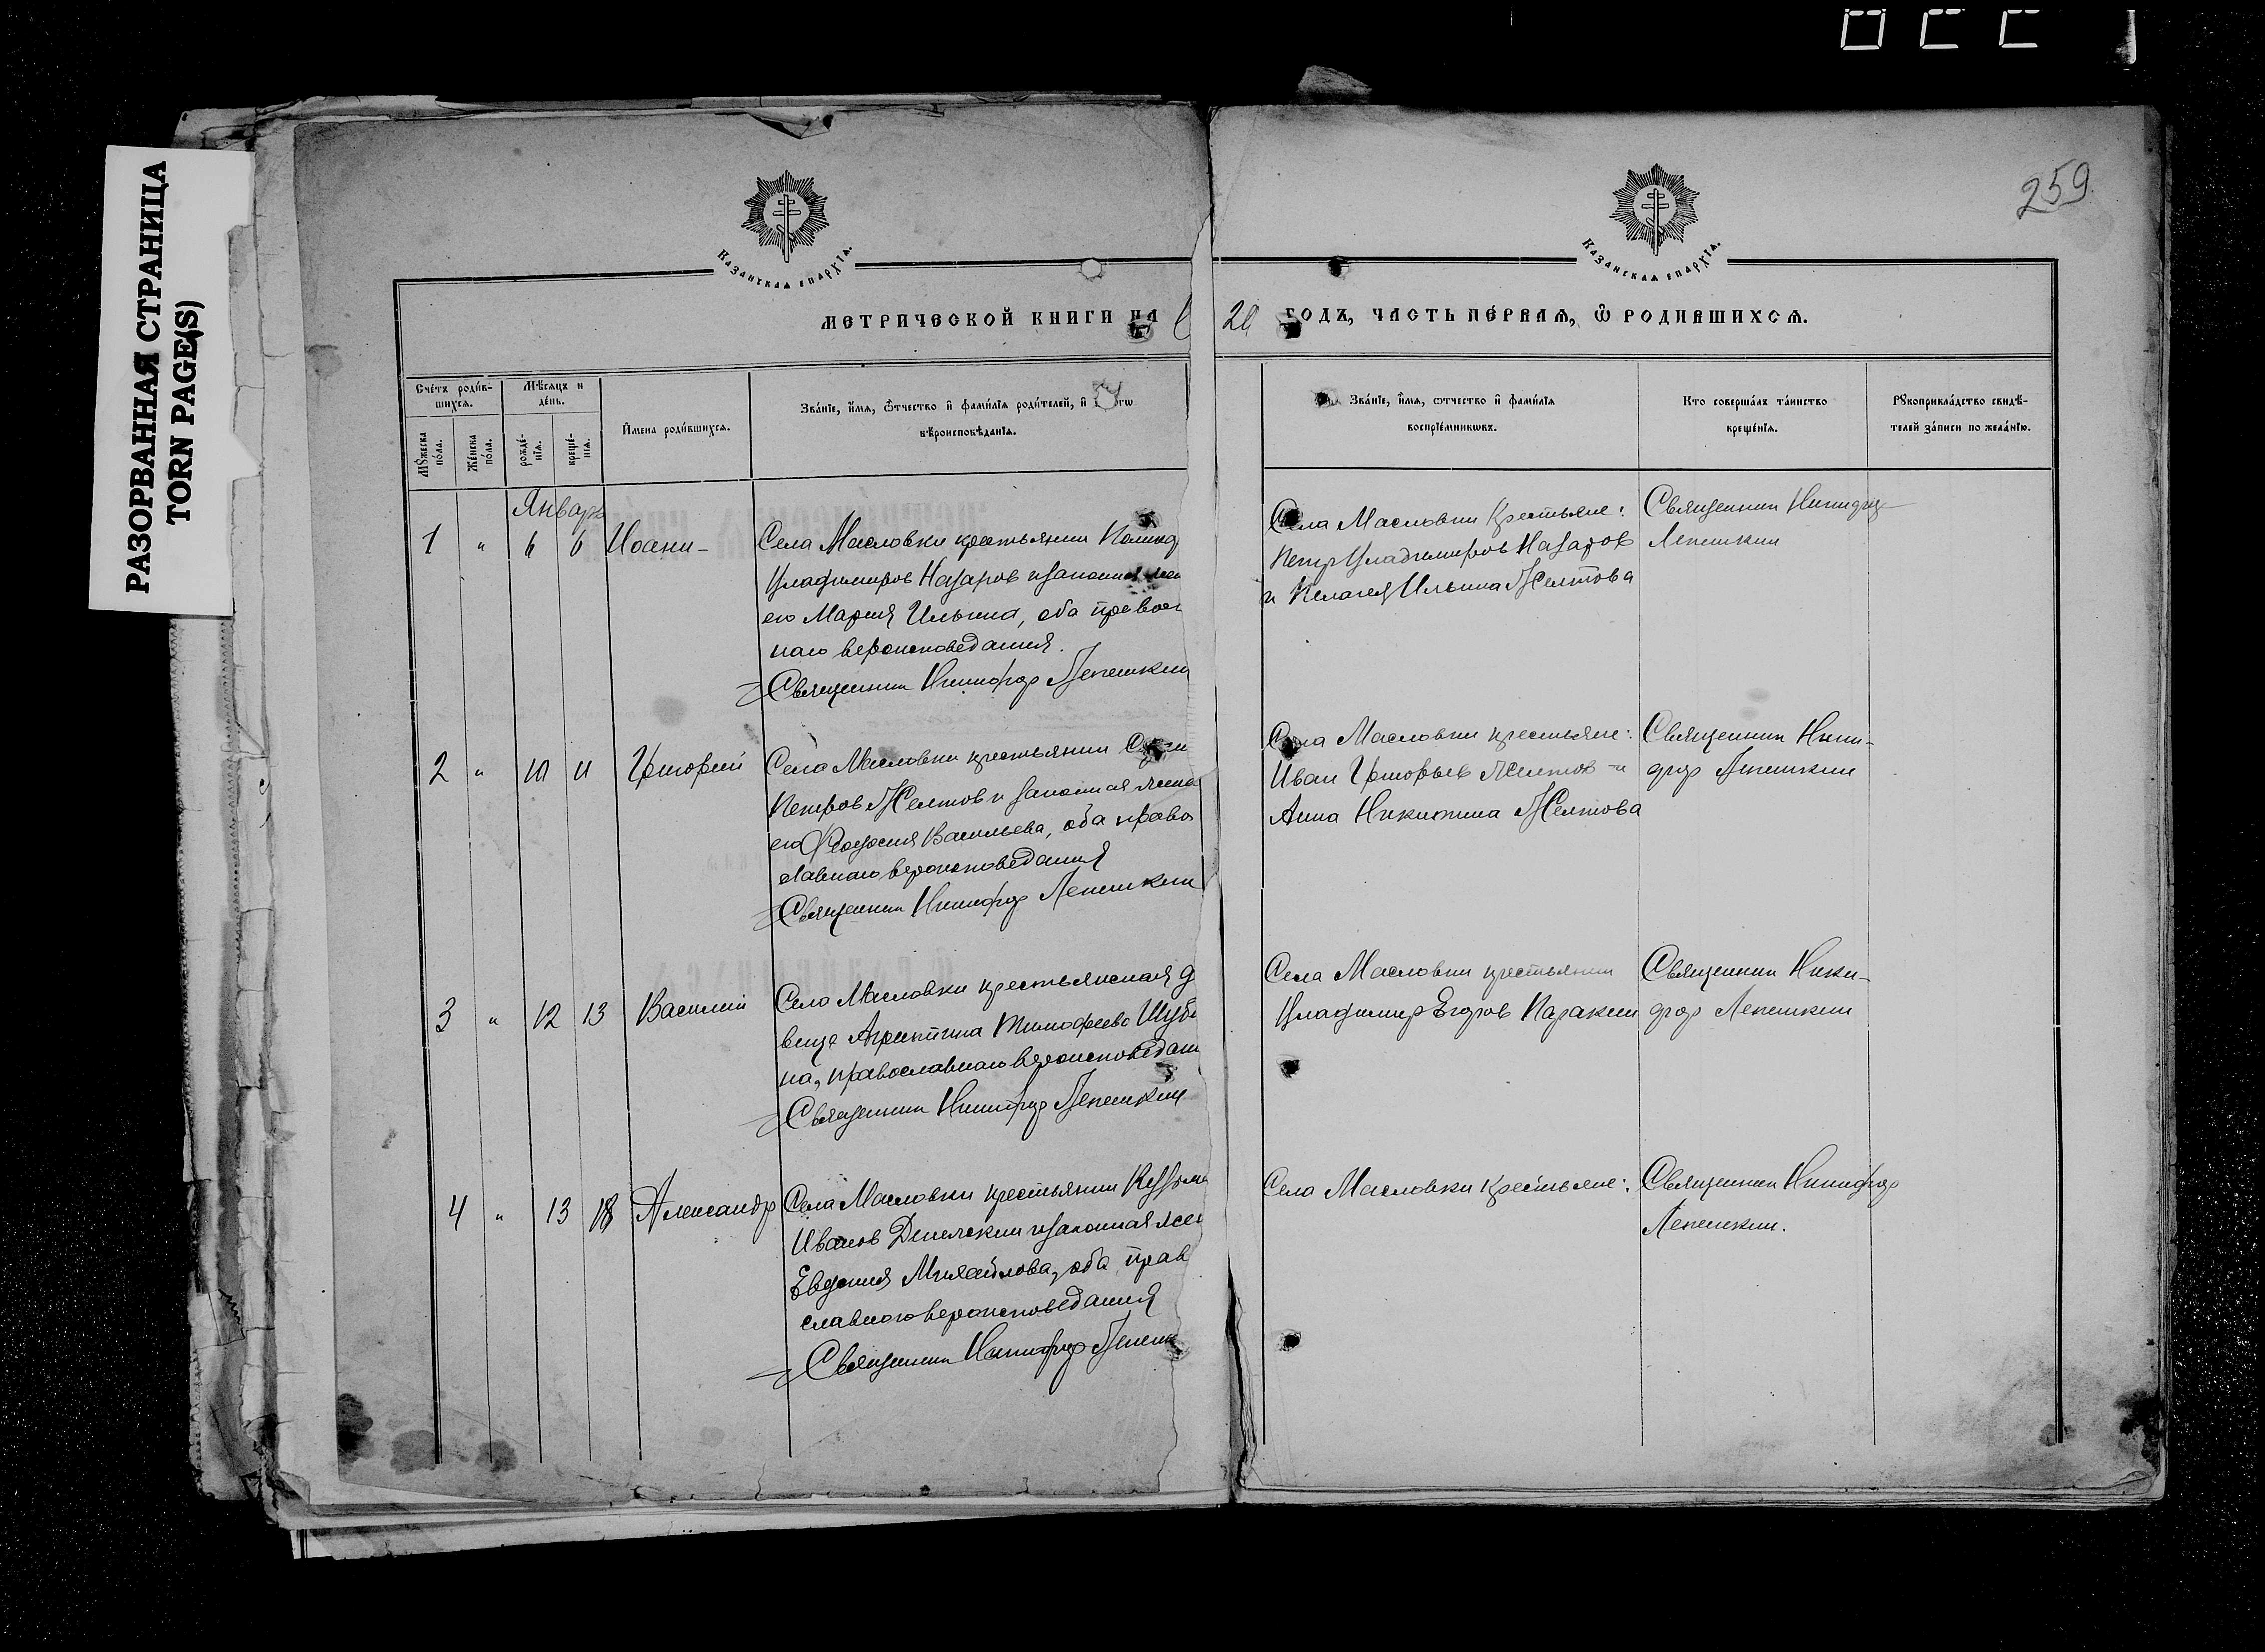 РАЗОРВАННАЯ СТРАНИЦА
TORN PAGE(S)
259
Казанская епархїѧ.
Казанская епархїѧ.
МЕТРИЧЕСКОЙ КНИГИ НА
20 ГОДЪ, ЧАСТЬ ПЕ́РВАѦ, Ѡ҆ РОДИВШИХСѦ.
Сче́тъ роди́в-
шихсѧ.
Мꙋ́жеска по́ла.
Же́нска по́ла.
Мѣ́сѧцъ и де́нь.
рожде́-нїѧ.
креще́-нїѧ.
И҆мена роди́вшихсѧ.
Зва́нїе, и҆́мѧ, ѻ҆́тчество и҆ фами́лїѧ роди́телей, и҆
вѣроисповѣ́данїѧ.
Зва́нїе, и҆́мѧ, ѻтчество и҆ фами́лїѧ
воспрїе́мникѡвъ.
Кто соверша́лъ та́инство
креще́нїѧ.
Рꙋкоприкла́дство свидѣ́-
телей за́писи по жела́нїю.
Январь
1 " 6 6 Иоанн
Села Масловки крестьянин
Владимиров Назаров и законная
его Мария Ильина, оба правос
наго вероисповедания.
Священник Никифор Лепешкин
Села Масловки крестьяне:
Петр Владимиров Назаров
и Пелагея Ильина Желтова
Священник Никифор
Лепешкин
2 " 10 11 Григорий
Села Масловки крестьянин
Петров Желтов и законная жена
его Феодосия Васильева, оба право
славнаго вероисповедания
Священник Никифор Лепешкин
Села Масловки крестьяне:
Иван Григорьев Желтов и
Анна Никитина Желтова
Священник Ники-
фор Лепешкин
3 " 12 13 Василий
Села Масловки крестьянская д
вица Агриппина Тимофеева Шуби
на, православнаго вероисповедани
Священник Никифор Лепешкин
Села Масловки крестьянин
Владимир Егоров Паракин
Священник Ники-
фор Лепешкин
4 " 13 18 Александр
Села Масловки крестьянин Кузьма
Иванов и законная жен
Евдокия Михайлова, оба прав
славнаго вероисповедания
Священник Никифор Лепешк
Села Масловки крестьяне:
Священник Никифор
Лепешкин.